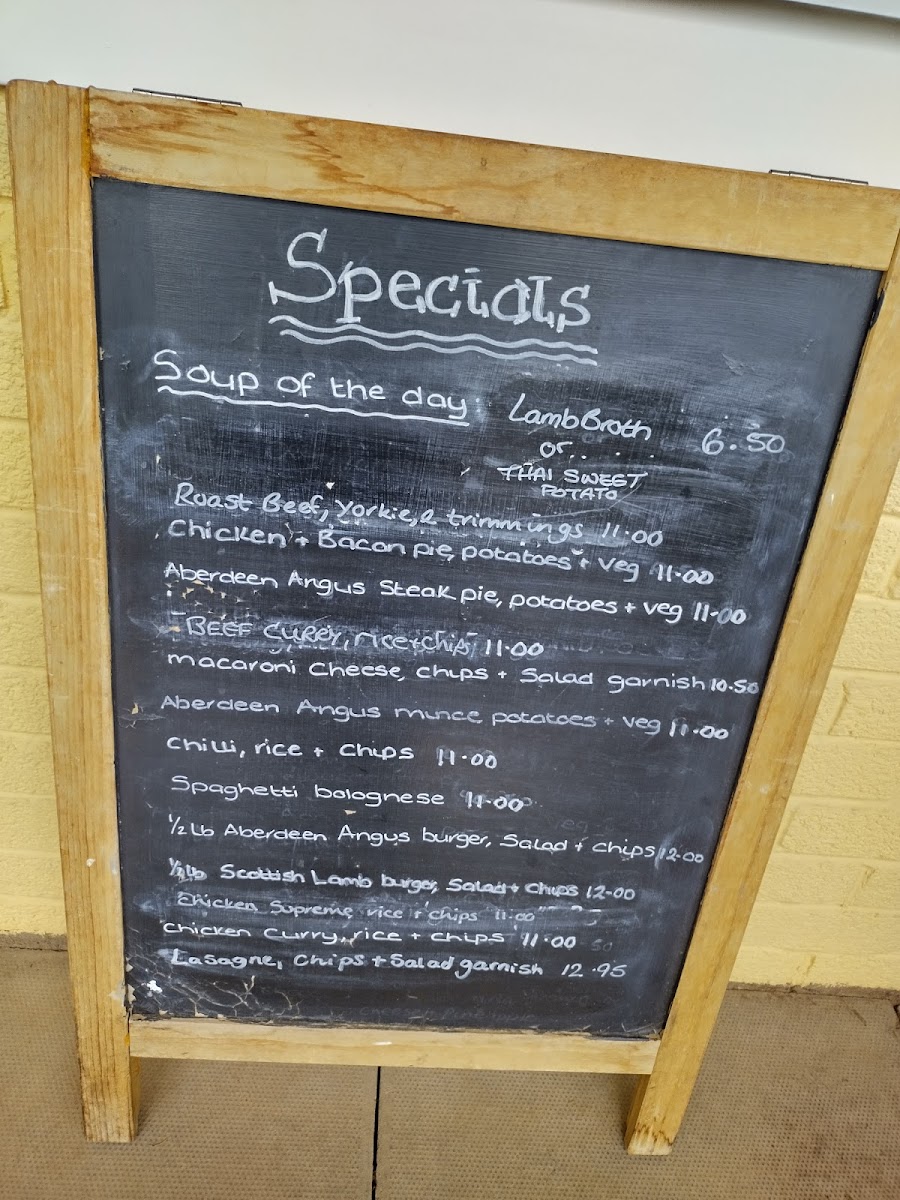 Specials
Soup of the day. Lamb Broth 6.50
or
THAI SWEET
POTATO
Roast Beef, Yorkie, & trimmings 11.00
Chicken + Bacon pie, potatoes + veg 11.00
Aberdeen Angus Steak pie, potatoes + veg 11.00
BEEF CURRY, rice + chips 11.00
macaroni Cheese, chips + Salad garnish 10.50
Aberdeen Angus mince potatoes + veg 11.00
Chilli, rice + Chips 11.00
Spaghetti bolognese 11.00
1/2 Lb Aberdeen Angus burger, Salad + chips 12.00
1/2 Lb Scottish Lamb burger, Salad + Chips 12.00
Chicken Supreme, rice + chips 11.00
Chicken Curry, rice + chips 11.00
Lasagne, Chips + Salad garnish 12.95